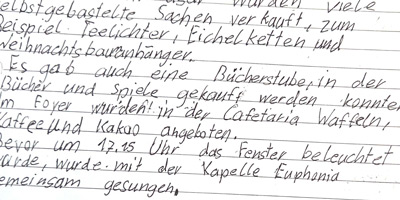 wurden viele
elbstgebastelte Sachen verkauft, zum
Beispiel Teelichter, Eichelketten und
Weihnachtsbaumanhänger.
Es gab auch eine Bücherstube, in der
Bücher und Spiele gekauft werden konnten
Im Foyer wurden in der Cafetaria Waffeln,
Kaffee und Kakao angeboten.
Bevor um 17.15 Uhr das Fenster beleuchtet
wurde, wurde mit der Kapelle Euphonia
emeinsam gesungen.